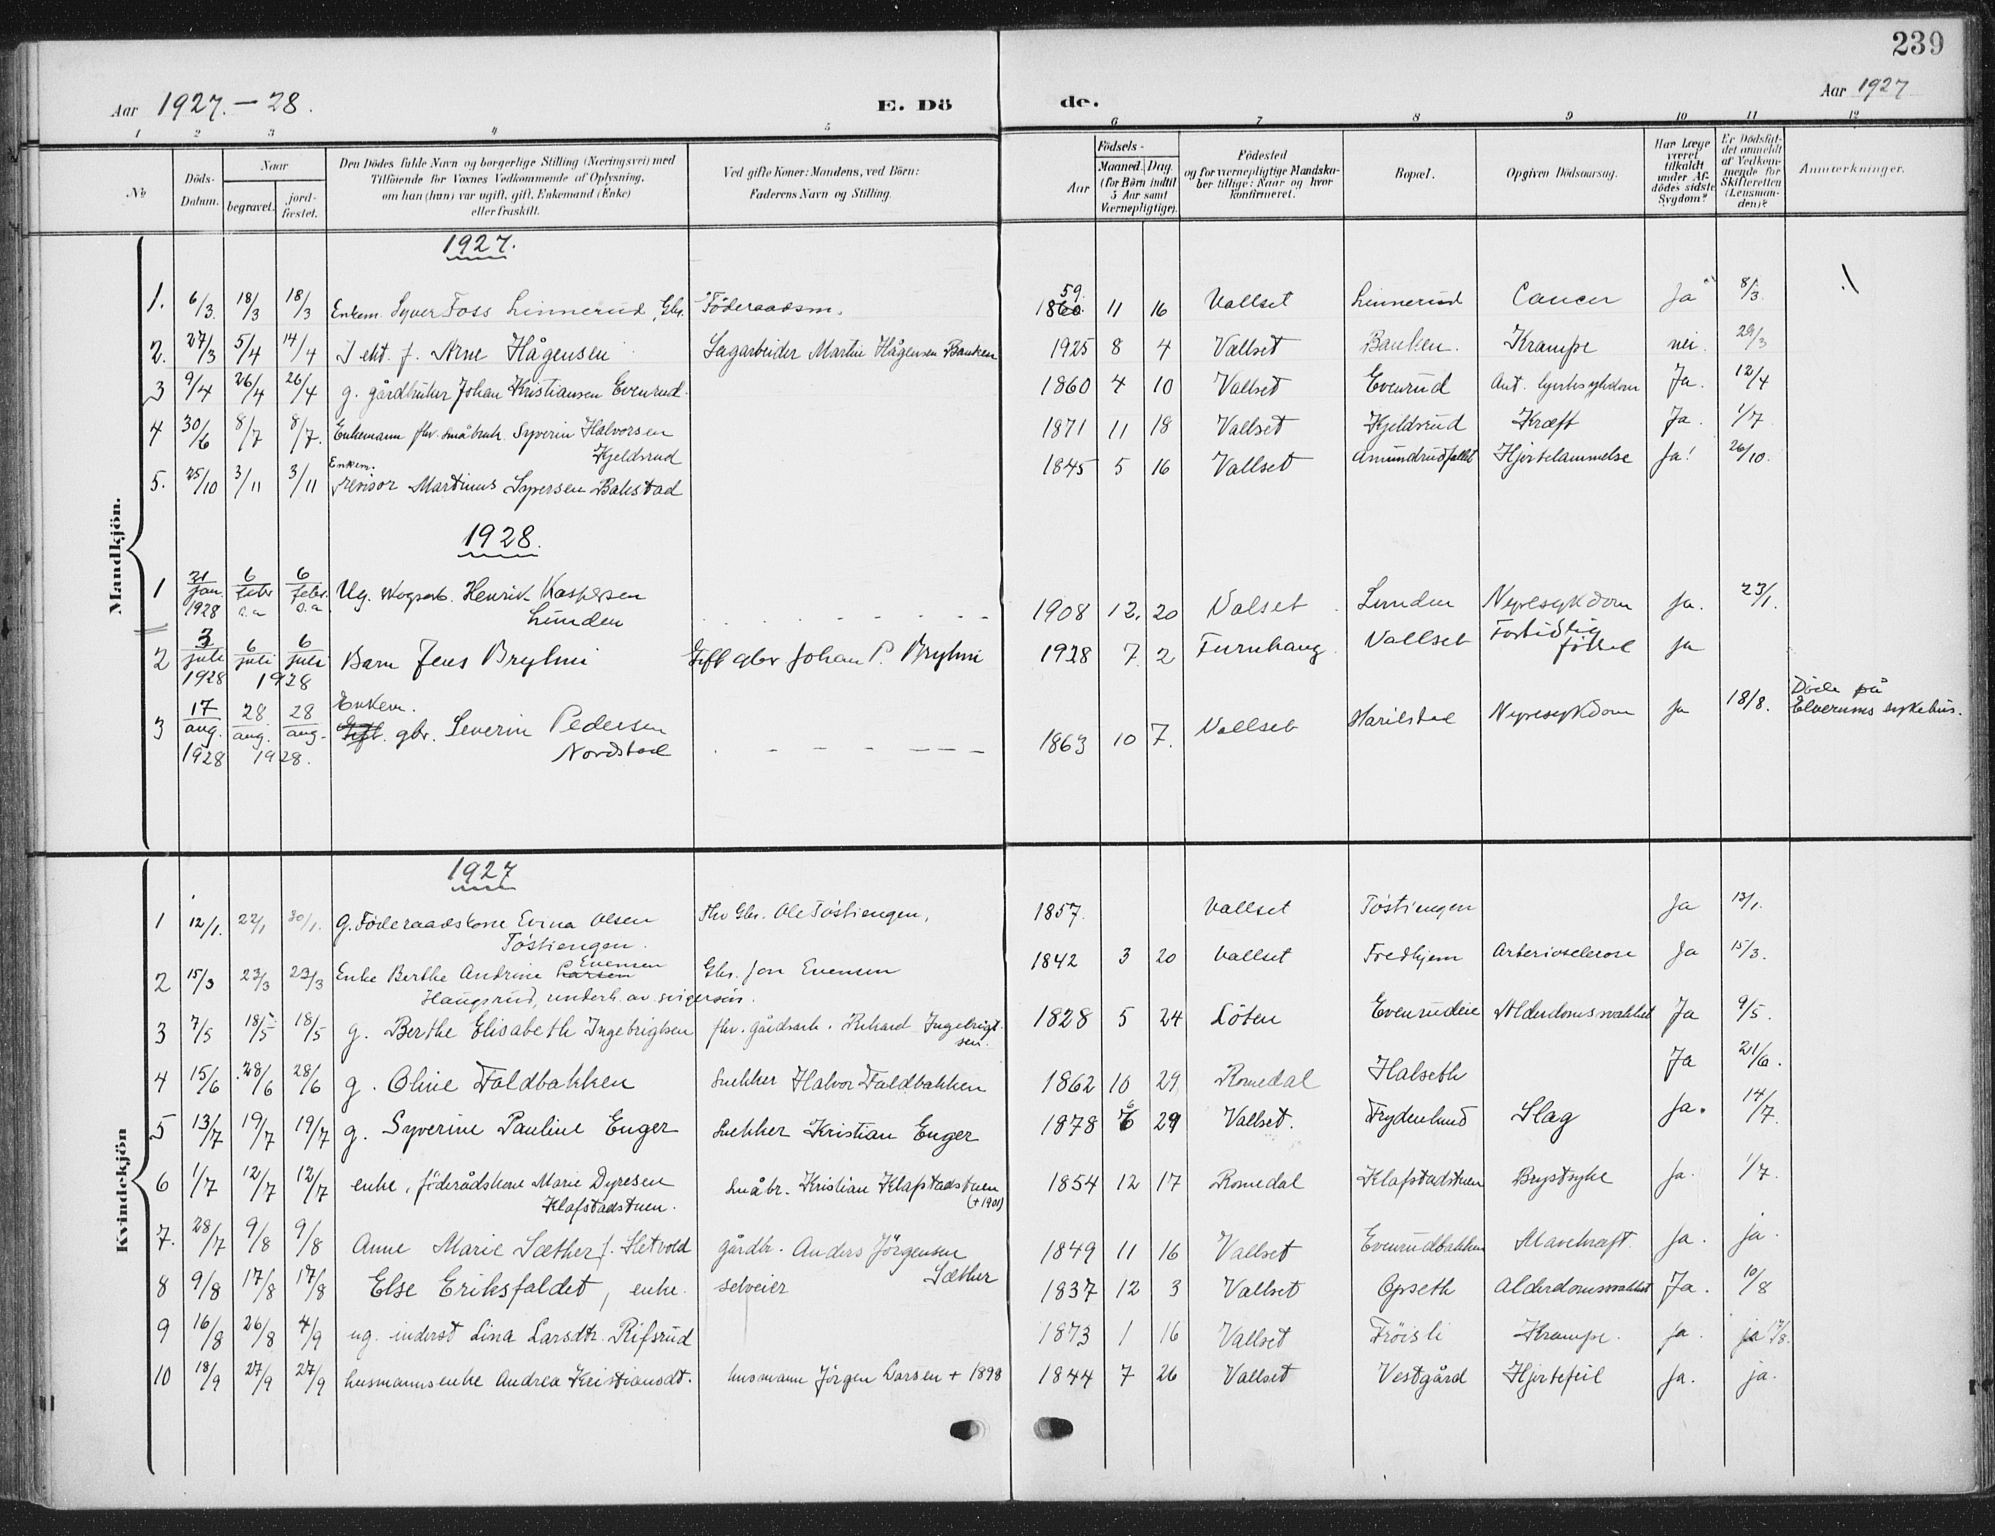 239
Aar 1927. – 28.
E. Dö
de.
Aar 1927
1 2 3 4 5 6 7 8 9 10 11 12
No
Döds-Datum.
Naar
begravet.
jord-fæstet.
Den Dödes fulde Navn og borgerlige Stilling (Næringsvei) med
Tilföiende for Voxnes Vedkommende af Oplysning,
om han (hun) var ugift, gift, Enkemand (Enke)
eller fraskilt.
Ved gifte Koner: Mandens, ved Börn:
Faderens Navn og Stilling.
Födsels-
Aar
Maaned. Dag.
(for Börn indtil
5 Aar samt
Værnepligtige).
Födested
og for værnepligtige Mandska-
ber tillige: Naar og hvor
konfirmeret.
Bopæl.
Opgiven Dödsaarsag.
Har Læge
været
tilkaldt
under Af-
dödes sidste
Sygdom?
Er Dödsfal-
det anmeldt
af Vedkom-
mende for
Skifteretten
(Lensman-
den)?
Anmerkninger.
Mandkjön.
1927.
1. 6/3 18/3 18/3 Enkem. Syver Foss Linnerud, Gbr. Föderaadsm. 1860 59 11 16 Vallset Linnerud Cancer Ja 8/3
2. 27/3 5/4 14/4 I ekt. f. Arne Hågensen Sagarbeider Martin Hågensen Banken 1925 8 4 Vallset Banken. Krampe nei. 29/3
3 9/4 26/4 26/4 g. gårdbruker Johan Kristiansen Evenrud. 1860 4 10 Vallset Evenrud Ant. hjertesykdom Ja. 12/4
4 30/6 8/7 8/7. Enkemann fhv. småbruk. Syverin Halvorsen
Kjeldsrud 1871 11 18 Vallset Kjeldsrud Kræft Ja. 1/7
5. 25/10 3/11 3/11 Enkem. revisor Martinus Syversen Bakstad 1845 5 16 Vallset Amundrudfallet Hjertelammelse Ja! 26/10.
1928.
1 31/jan. 1928 6/febr. c.a 6/febr. c.a Ug. skogsarb. Henrik Kaspersen
Lunden 1908 12. 20 Valset Lunden Nyresykdom Ja. 23/1.
2 3/juli 1928 6/juli 6/juli 1928 Barn Jens Bryhni Gift gbr Johan P. Bryhni 1928 7 2 Furuhaug Vallset Fortidlig
födsel Ja
3 17/aug. 1928 28/aug. 28/aug. 1928. Enkem. Gift. gbr. Severin Pedersen
Nordstad 1863 10 7. Vallset Harilstad Nyresykdom Ja 18/8. Döde på
Elverums sykehus.
Kvindekjön
1927
1 12/1. 22/1 30/1. g. Föderaadskone Evina Olsen
Töstiengen. Fhv Gbr. Ole Töstiengen, 1857. Vallset Töstiengen Ja 13/1.
2 15/3 23/3 23/3 Enke Berthe Andrine Larsen Evensen
Haugsrud, underh. av svigersön. Gbr. Jon Evensen 1842 3 20 Vallset Fredhjem Arteriosclerose Ja 15/3.
3 7/5 18/5 18/5 g. Berthe Elisabeth Ingebrigtsen fhv. gårdsarb. Rikard Ingebrigt-
sen. 1828 5 24 Löten Evenrudeie Alderdomssvakhet Ja 9/5.
4 15/6 28/6 28/6 g. Oline Foldbakken Snekker Halvor Foldbakken 1862 10 29 Romedal Halseth Ja 21/6.
5 13/7 19/7 19/7 g. Syverine Pauline Enger Snekker Kristian Enger 1878 6 29 Vallset. Frydenlund Slag Ja. 14/7.
6 1/7 12/7 12/7 enke, föderådskone Marie Dyresen
Klafstadstuen. Småbr. Kristian Klafstadstuen
(+1901) 1854 12 17 Romedal Klafstadstuen Brystsyke Ja. 1/7.
7. 28/7 9/8 9/8 Anne Marie Sæther f. Hetvold gårdbr. Anders Jörgensen
Sæther 1849 11 16 Vallset Evenrudbakken Mavekræft Ja. ja.
8 9/8 17/8 17/8 Else Eriksfaldet, enke. selveier 1837 12 3 Vallset Opseth Alderdomssvakhet Ja. 10/8
9 16/8 26/8 4/9 ug. inderst Lina Larsdtr. Rifsrud 1873 1 16 Vallset Fröisli Krampe. ja. ja 17/8.
10 18/9 27/9 27/9 husmannsenke Andrea Kristiansdt. husmann Jörgen Larsen + 1898 1844 7 26 Vallset Vestgård Hjertefeil Ja. ja.